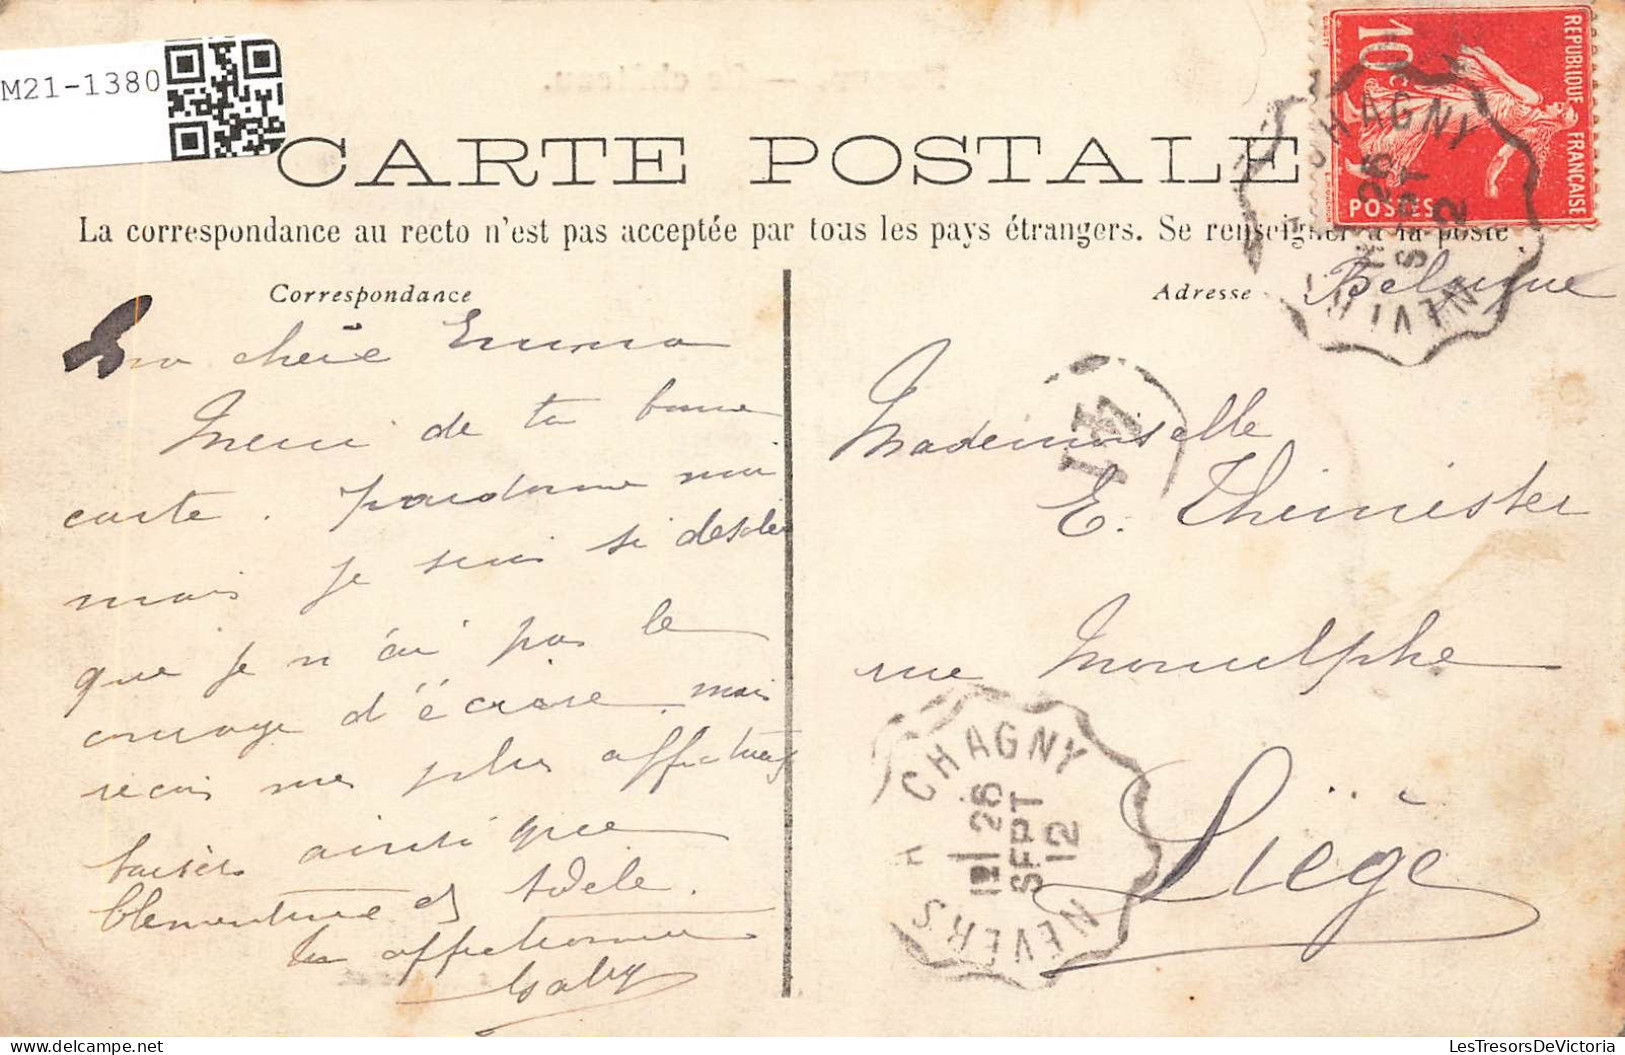 M21-1380
CARTE POSTALE
La correspondance au recto n'est pas acceptée par tous les pays étrangers. Se renseigner à la poste
Correspondance
Adresse
REPUBLIQUE FRANÇAISE
10c
POSTES
CHAGNY
26
SEPT
12
Belgique
Ma chère Emma
Merci de ta bonne
carte. pardonne moi
mais je suis si désolée
que je n'ai pas le
courage d'écrire mais
reçois mes plus affectueux
baisers ainsi que
Clementine et Adele.
ton affectionnée
Gaby
Mademoiselle
E. Theunister
rue Monulphe
Liège
CHAGNY A NEVERS
12 26
SEPT
12
LesTresorsDeVictoria